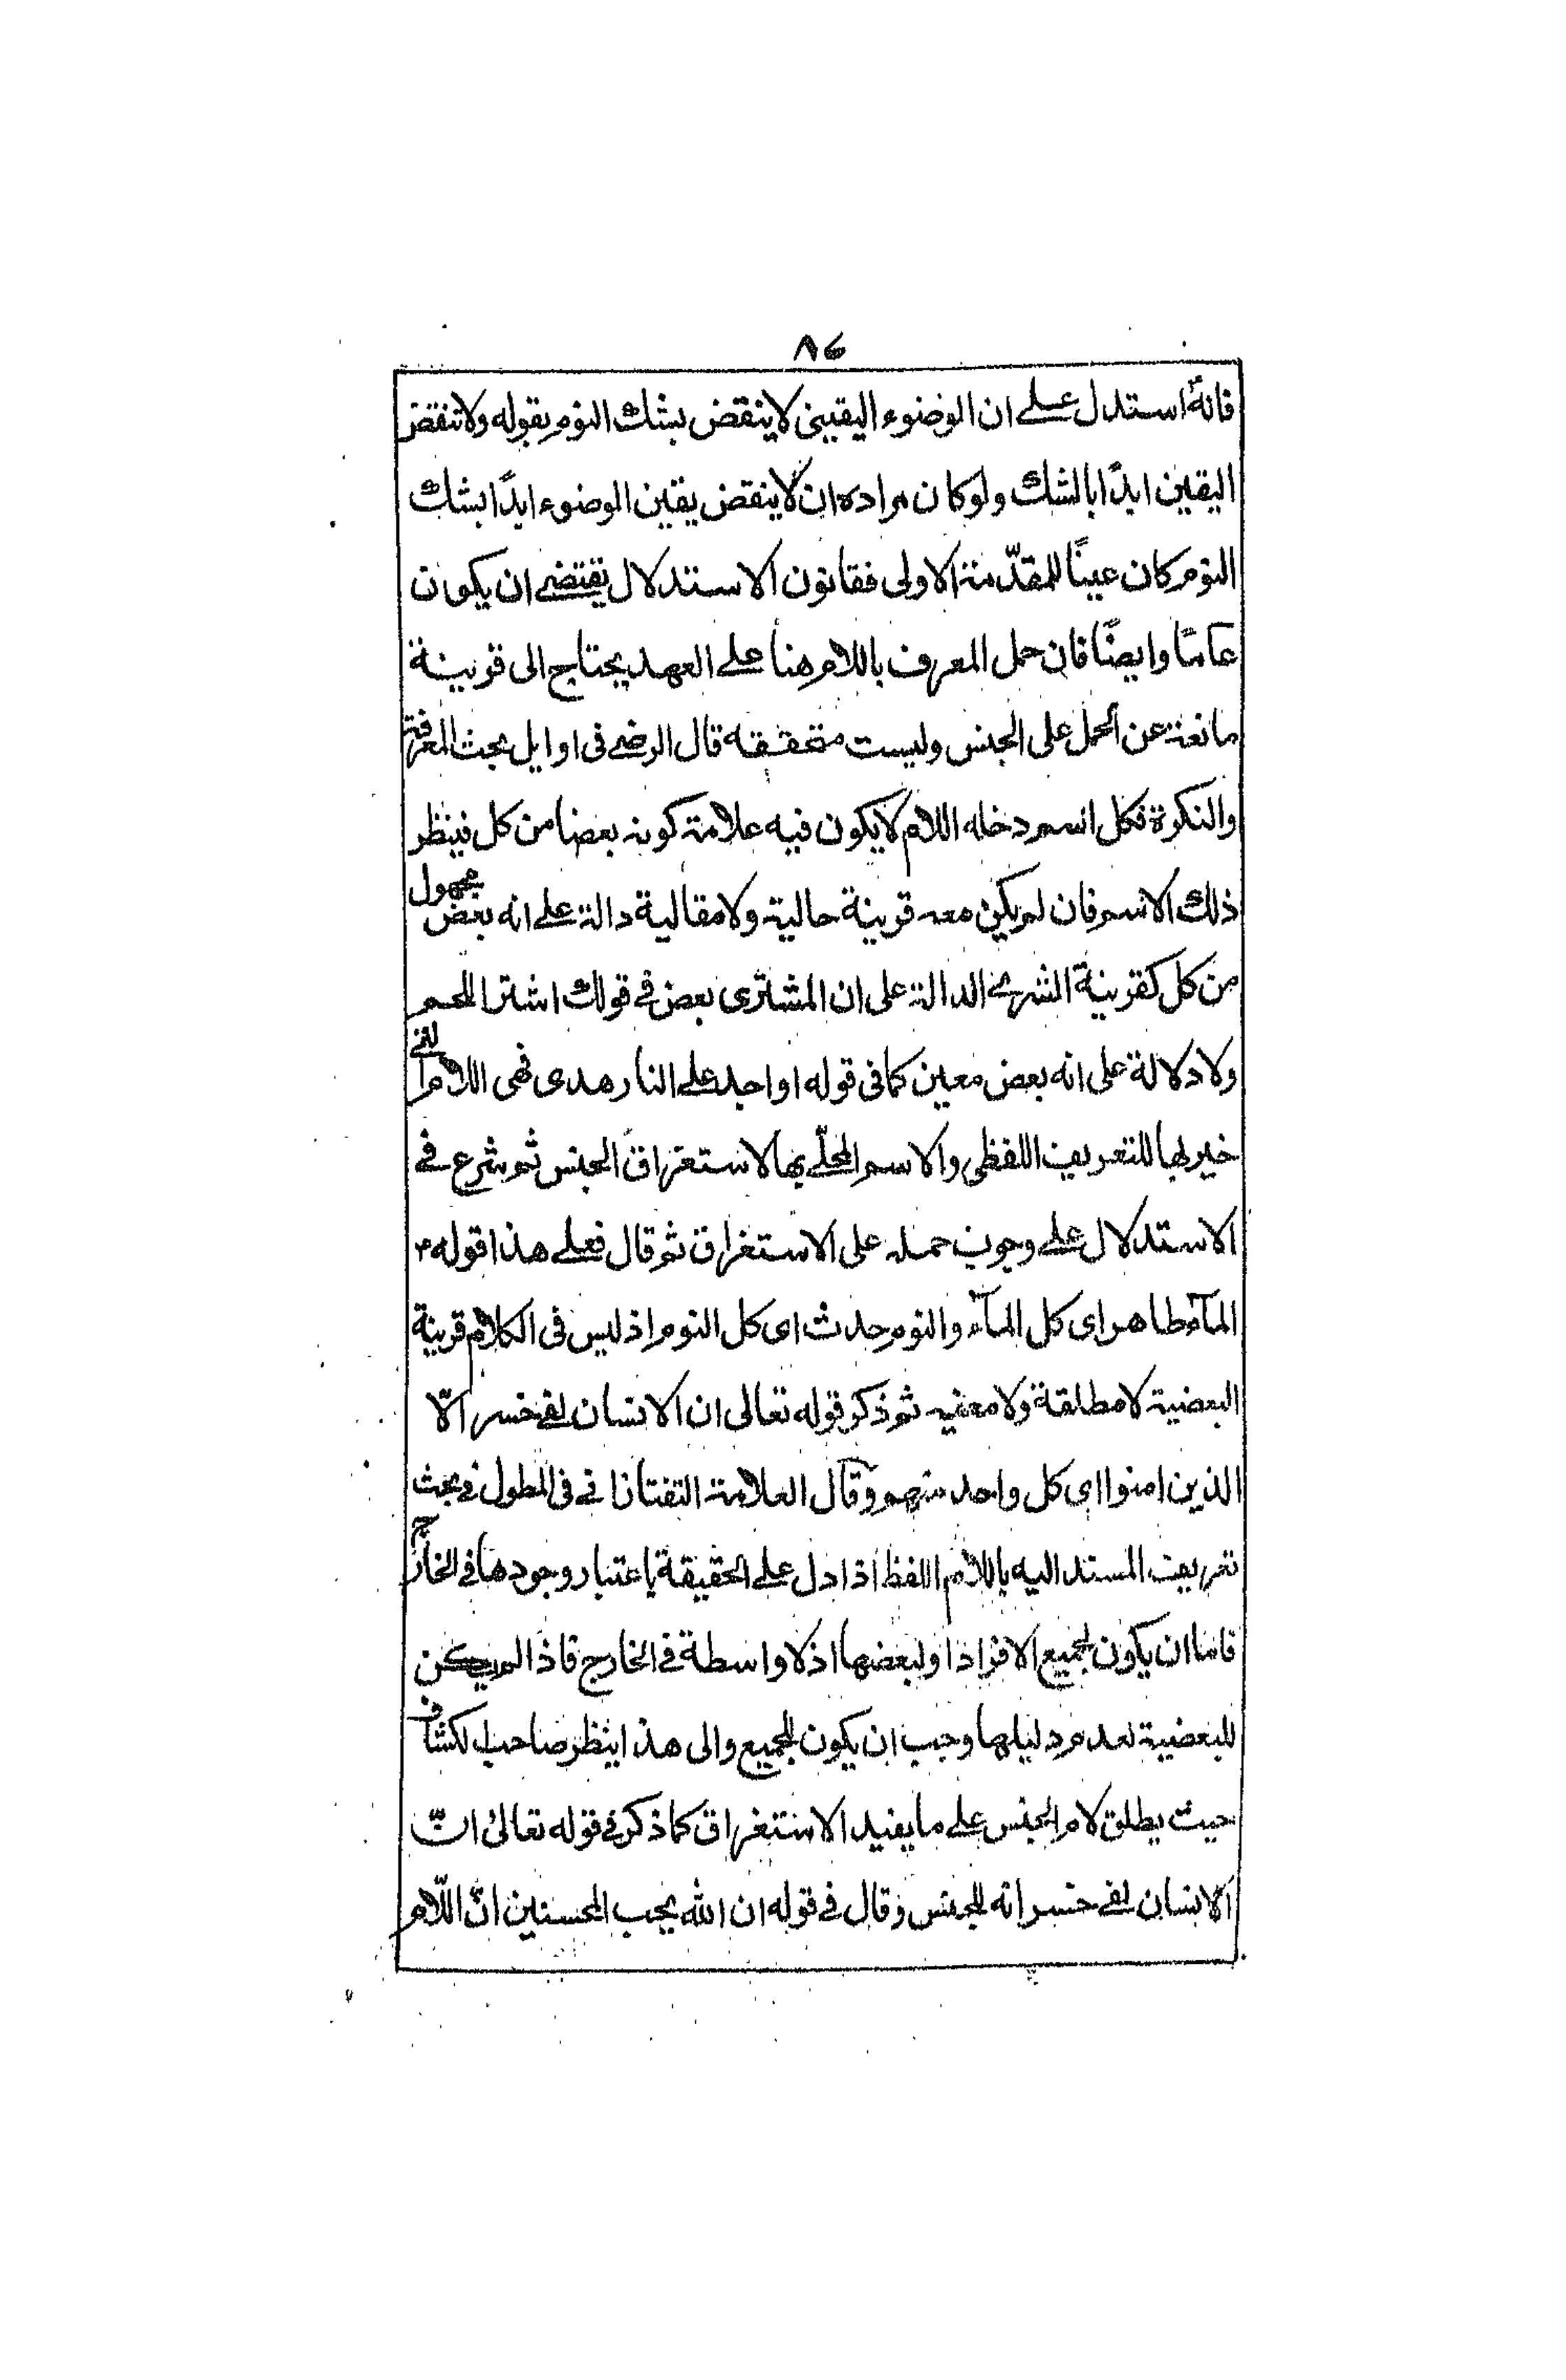 ٨٤
فانهٗ استدل على ان الوضوء اليقينى لا ينقض بشك النوم بقوله ولا تنقض
اليقين ابدًا بالشك ولو كان مراده ان لا ينقض يقين الوضوء ابدًا بشك
النوم كان عينًا للمقدّمة الاولى فقانون الاستدلال يقتضى ان يكون
عامًا وايضًا فان حمل المعرف باللام هنا على العهد يحتاج الى قرينة
مانعة عن الحمل على الجنس وليست متحققه قال الرضى فى اوايل بحث المعرفة
والنكرة فكل اسم دخله اللام لا يكون فيه علامة كونه بعضا من كل فينظر
ذلك الاسم فان لم يكن معه قرينة حالية ولا مقالية دالة على انه بعض مجهول
من كل كقرينة الشرى الدالة على ان المشترى بعض فى قولك اشتر اللحم
ولا دلالة على انه بعض معين كما فى قوله او اجد على النار هدى فهى اللام التى
خير بها للتعريف اللفظى والاسم المحلّى بها لاستغراق الجنس ثم شرع فى
الاستدلال على وجوب حمله على الاستغراق ثم قال فعلى هذا قوله ٢
المآء طاهر اى كل المآء والنوم حدث اى كل النوم اذ ليس فى الكلام قرينة
البعضية لا مطلقة ولا معنيه ثم ذكر قوله تعالى ان الانسان لفى خسر الّا
الذين امنوا اى كل واحد منهم وقال العلامة التفتازانى فى المطول فى بحث
تعريف المسند اليه باللام اللفظ اذا دل على الحقيقة باعتبار وجودها فى الخارج
فاما ان يكون لجميع الافراد او لبعضها اذ لا واسطة فى الخارج فاذا لم يكن
للبعضية لعدم دليلها وجب ان يكون للجميع والى هذا ينظر صاحب الكشاف
حيث يطلق لام الجنس على ما يفيد الاستغراق كما ذكر فى قوله تعالىٰ انّ
الانسان لفى خسر انه للجنس وقال فى قوله ان الله يحب المحسنين انّ اللّام